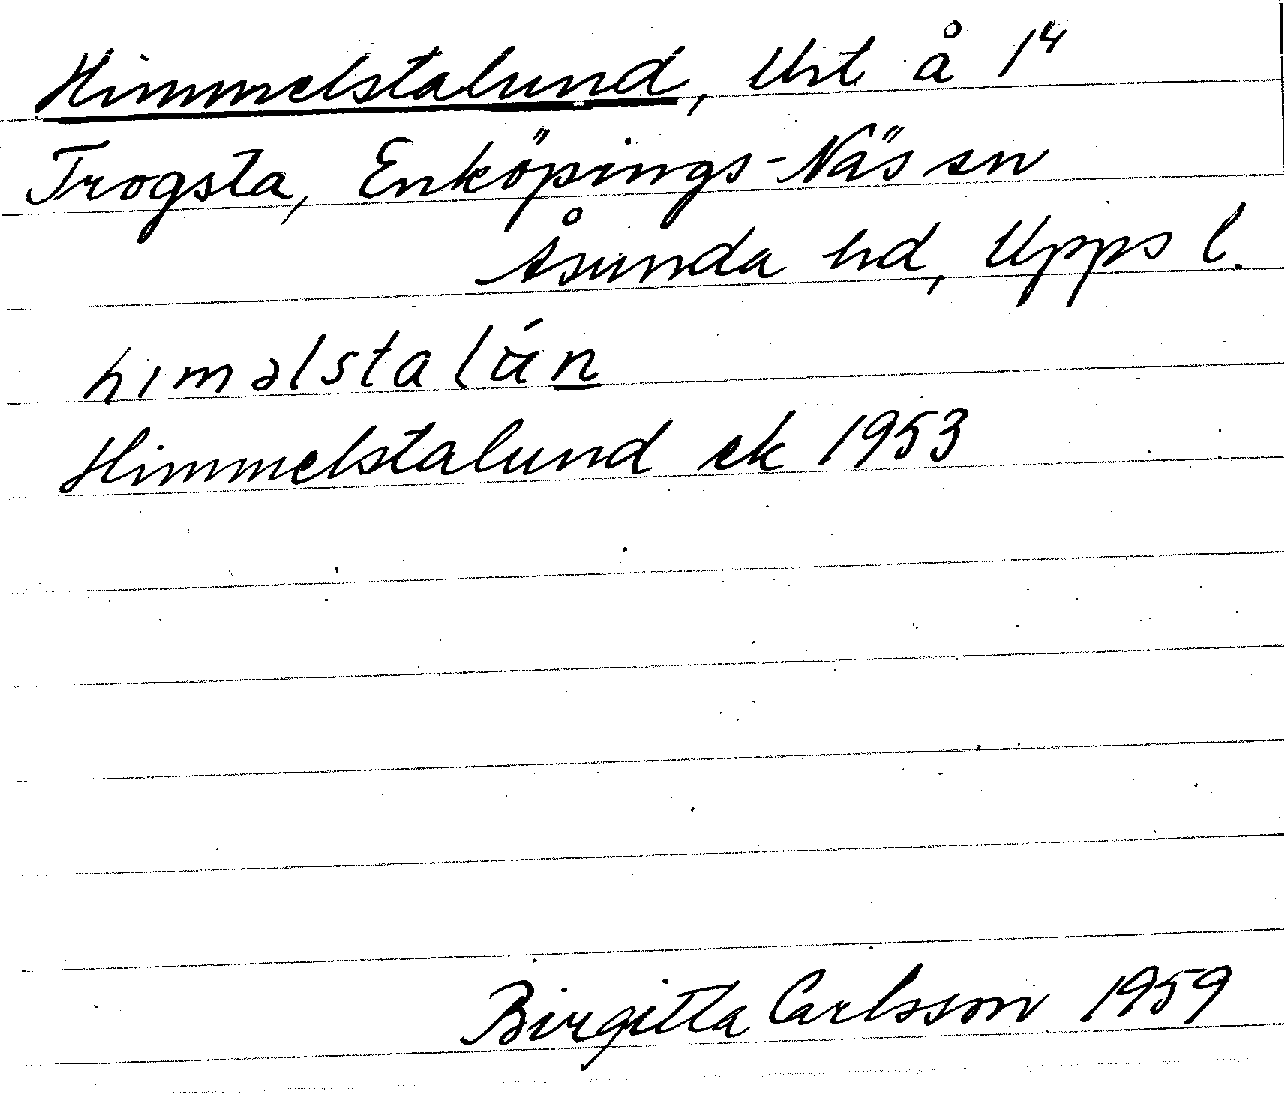 Himmelstalund, Uht å 1⁴
Trogsta, Enköpings-Näs sn
Åsunda hd, Upps l.
himəlstalún
Himmelstalund ek 1953
Birgitta Carlsson 1959